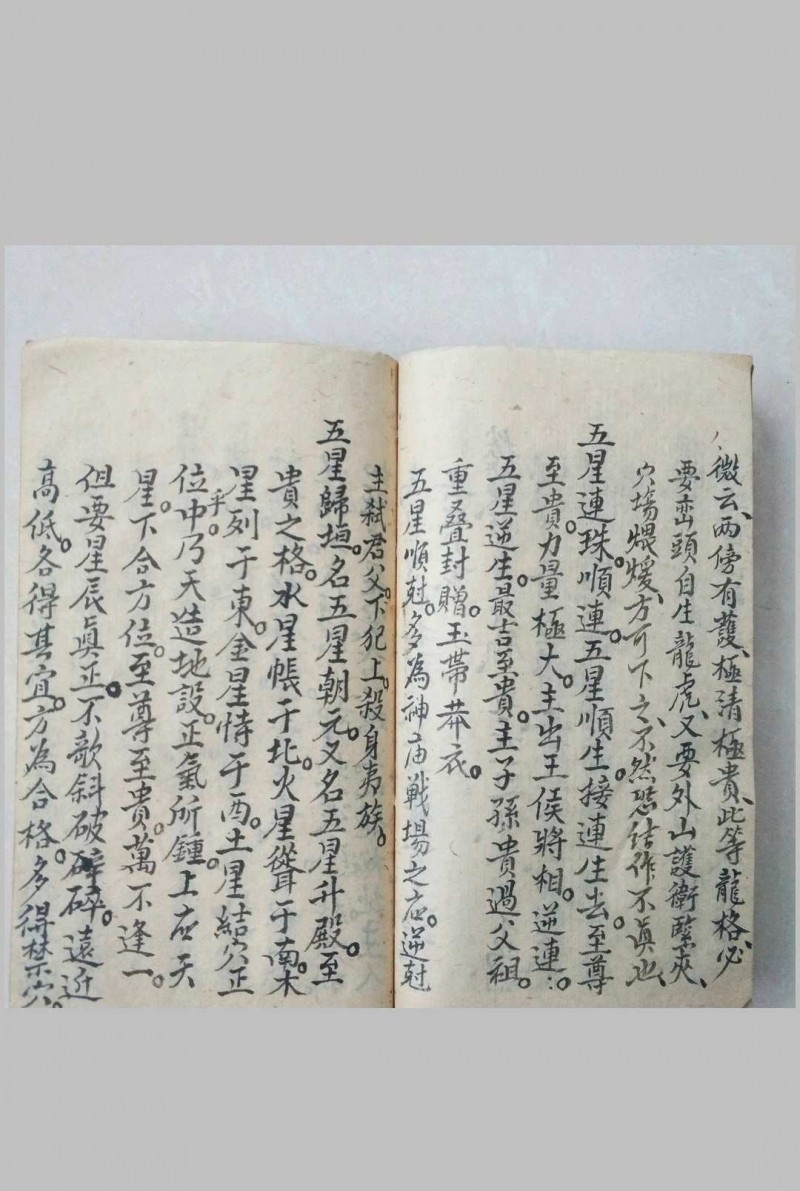 微云、两傍有護、極清極貴、此等龍格、必
要峦頭自生龍虎、又要外山護衛緊夾、
穴塲煨煖、方可下之、不然恐结作不眞也
五星連珠順連。五星順生接連生去。至尊
至貴。力量極大。主出王侯將相。逆連：。
五星逆生。最吉至貴。主子孫貴過父祖。
重叠封贈。玉帶莽衣。
五星順尅。多為神庙戰場之应。逆尅
主弑君父。下犯上。殺身夷族。
五星歸垣。名五星朝元。又名五星升殿。至
貴之格。水星帳于北。火星聳于南。木
星列于東。金星恃于酉。土星结穴正
位中乃天造地設。正氣所鍾。上应天
乎。
星。下合方位。至尊至貴。萬不逢一。
但要星辰眞正。不欹斜破碎。遠近
高低。各得其宜。方為合格。多得禁穴。